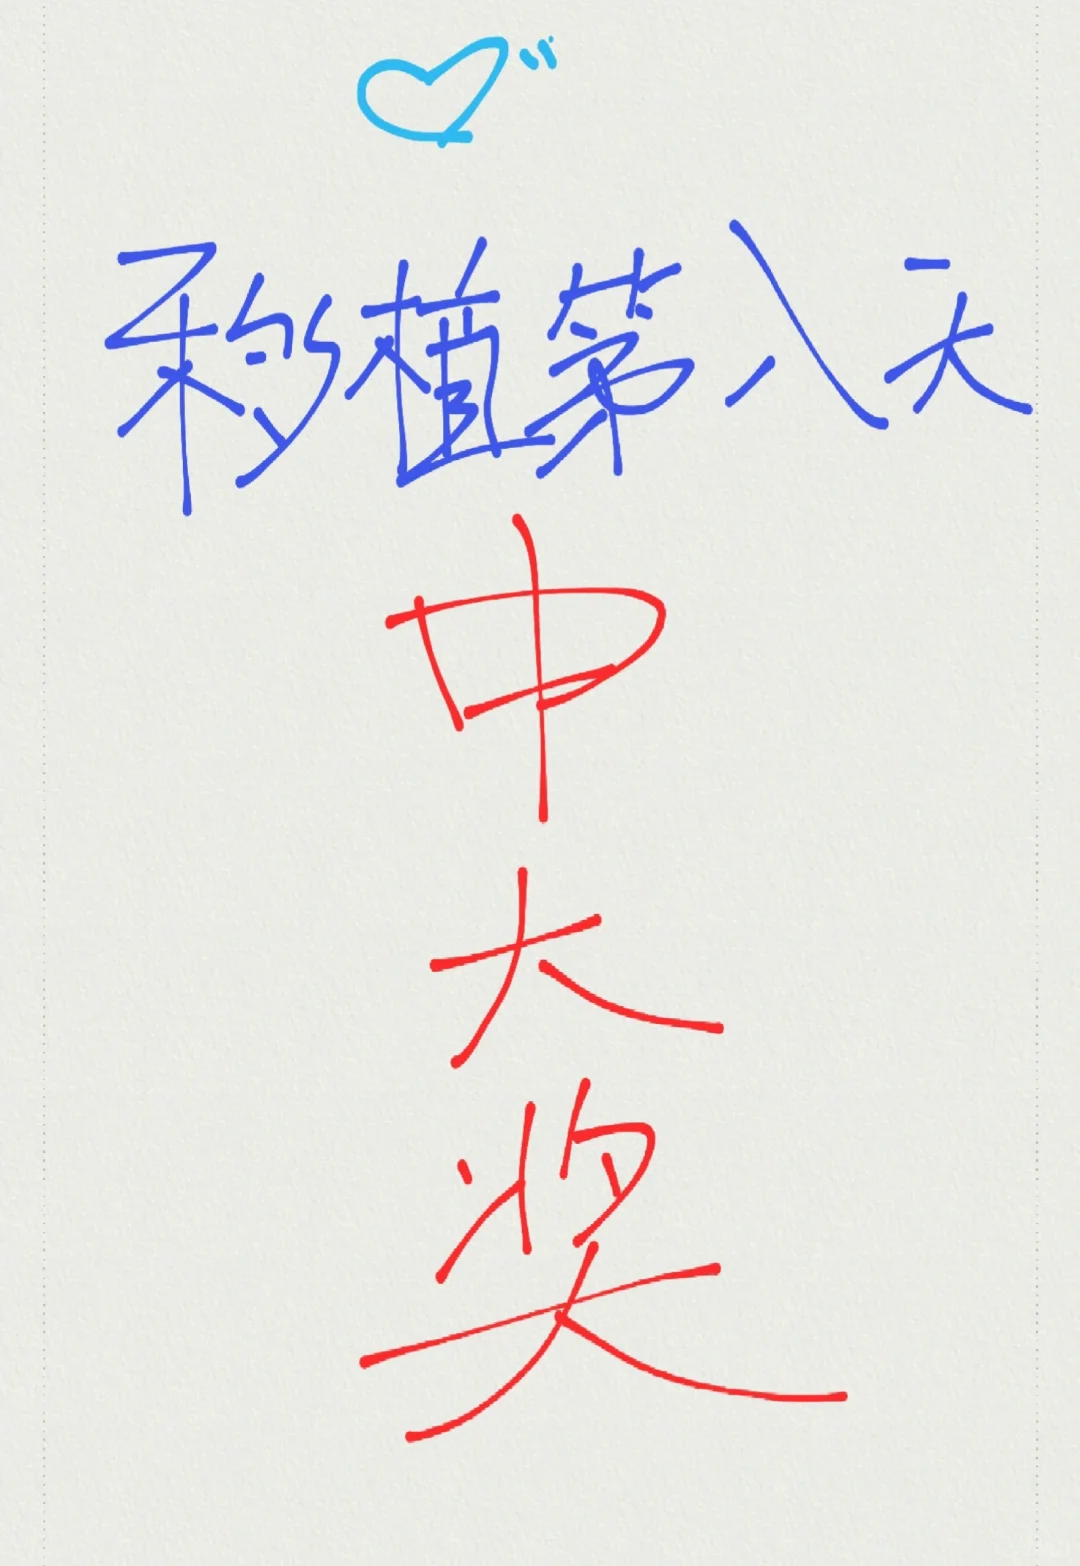 移植第八天
中
大
奖